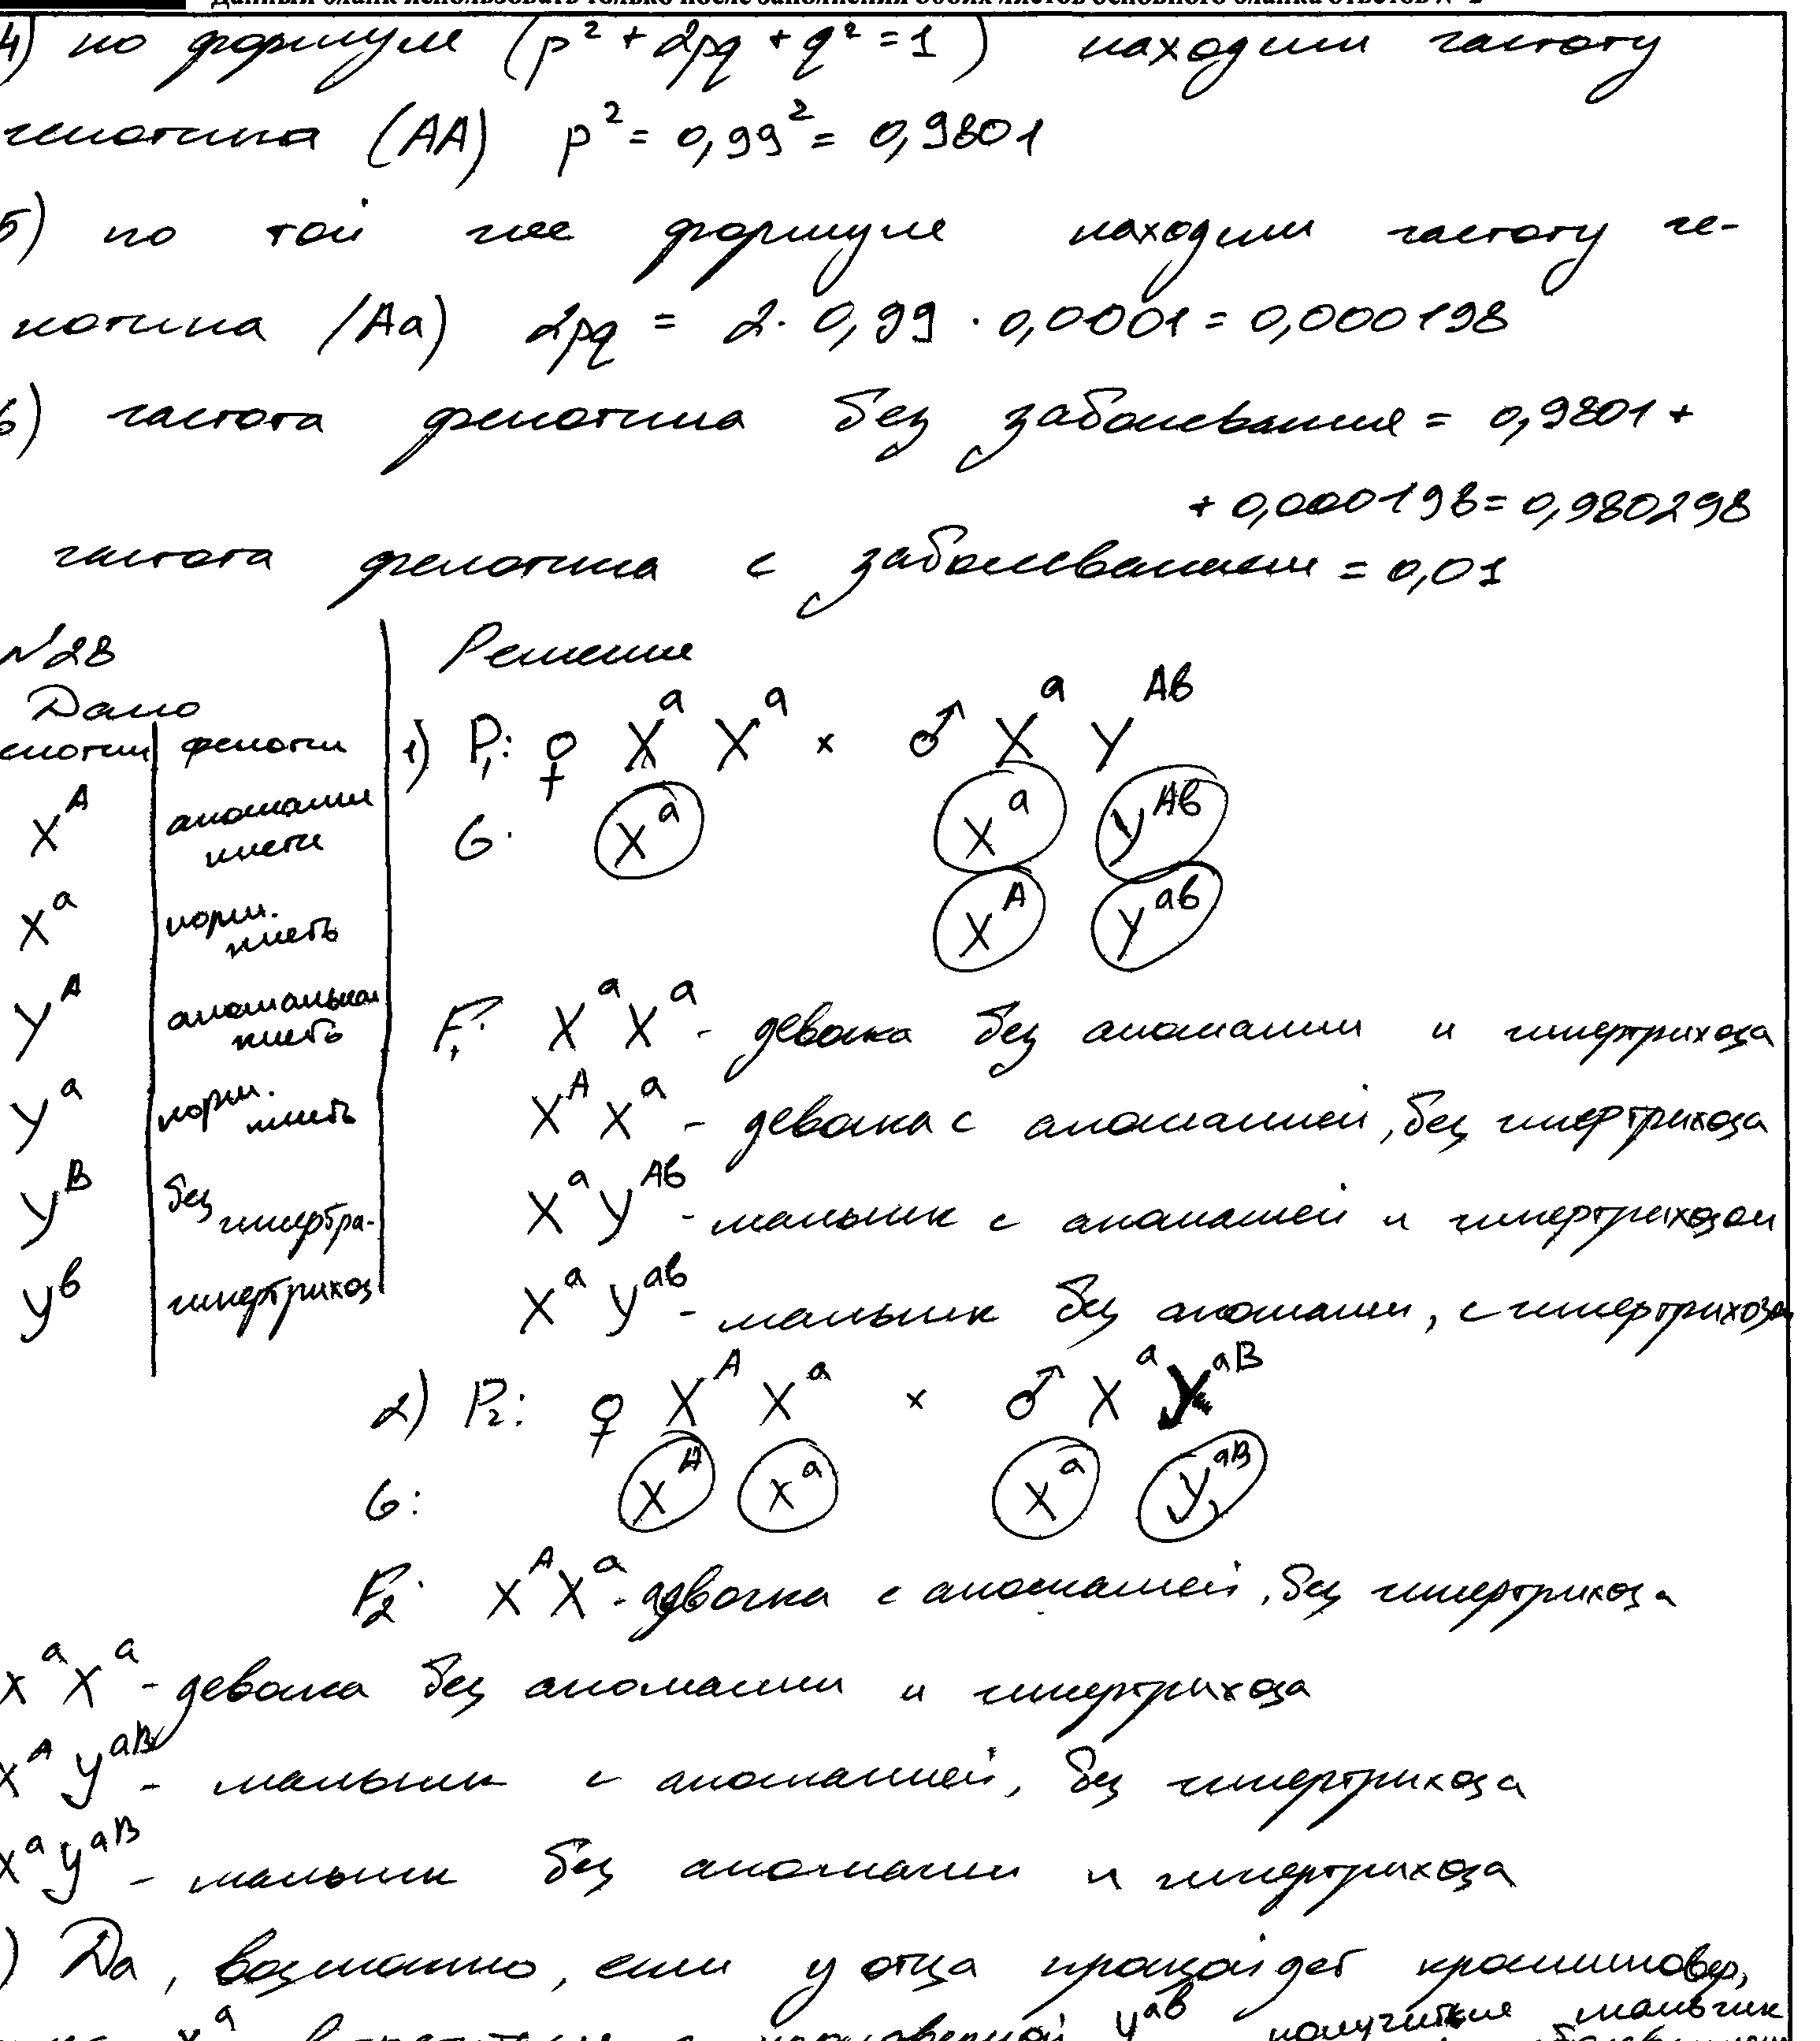 Данный бланк использовать только после заполнения обоих листов основного бланка ответов № 2
4) по формуле (p² + 2pq + q² = 1) находим частоту
генотипа (AA) p² = 0,99² = 0,9801
5) по той же формуле находим частоту ге-
нотипа (Aa) 2pq = 2 · 0,99 · 0,0001 = 0,000198
6) частота фенотипа без заболевания = 0,9801 +
+ 0,000198 = 0,980298
частота фенотипа с заболеванием = 0,01
№28
Дано
Решение
енотип фенотип
X^A аномалии кисти
X^a норм. кисть
Y^A аномальная кисть
Y^a норм. кисть
Y^B без гипертри-
Y^b гипертрихоз
1) P₁: ♀ X^a X^a × ♂ X^a Y^Ab
G: X^a X^a Y^Ab
X^A Y^ab
F₁: X^a X^a - девочка без аномалии и гипертрихоза
X^A X^a - девочка с аномалией, без гипертрихоза
X^a Y^Ab - мальчик с аномалией и гипертрихозом
X^a Y^ab - мальчик без аномалии, с гипертрихозом
2) P₂: ♀ X^A X^a × ♂ X^a Y^aB
G: X^A X^a X^a Y^aB
F₂: X^A X^a - девочка с аномалией, без гипертрихоза
X^a X^a - девочка без аномалии и гипертрихоза
X^A Y^aB - мальчик с аномалией, без гипертрихоза
X^a Y^aB - мальчик без аномалии и гипертрихоза
) Да, возможно, если у отца произойдет кроссинговер,
X^a Y^ab получится мальчик